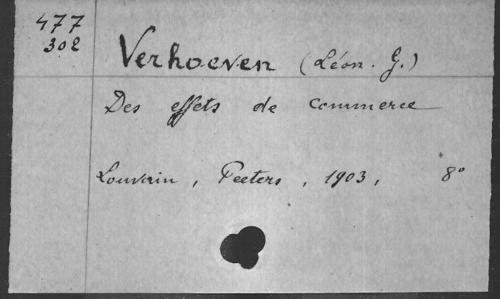 477
302
Verhoeven (Léon. G.)
Des effets de commerce
Louvain, Peeters, 1903, 8°